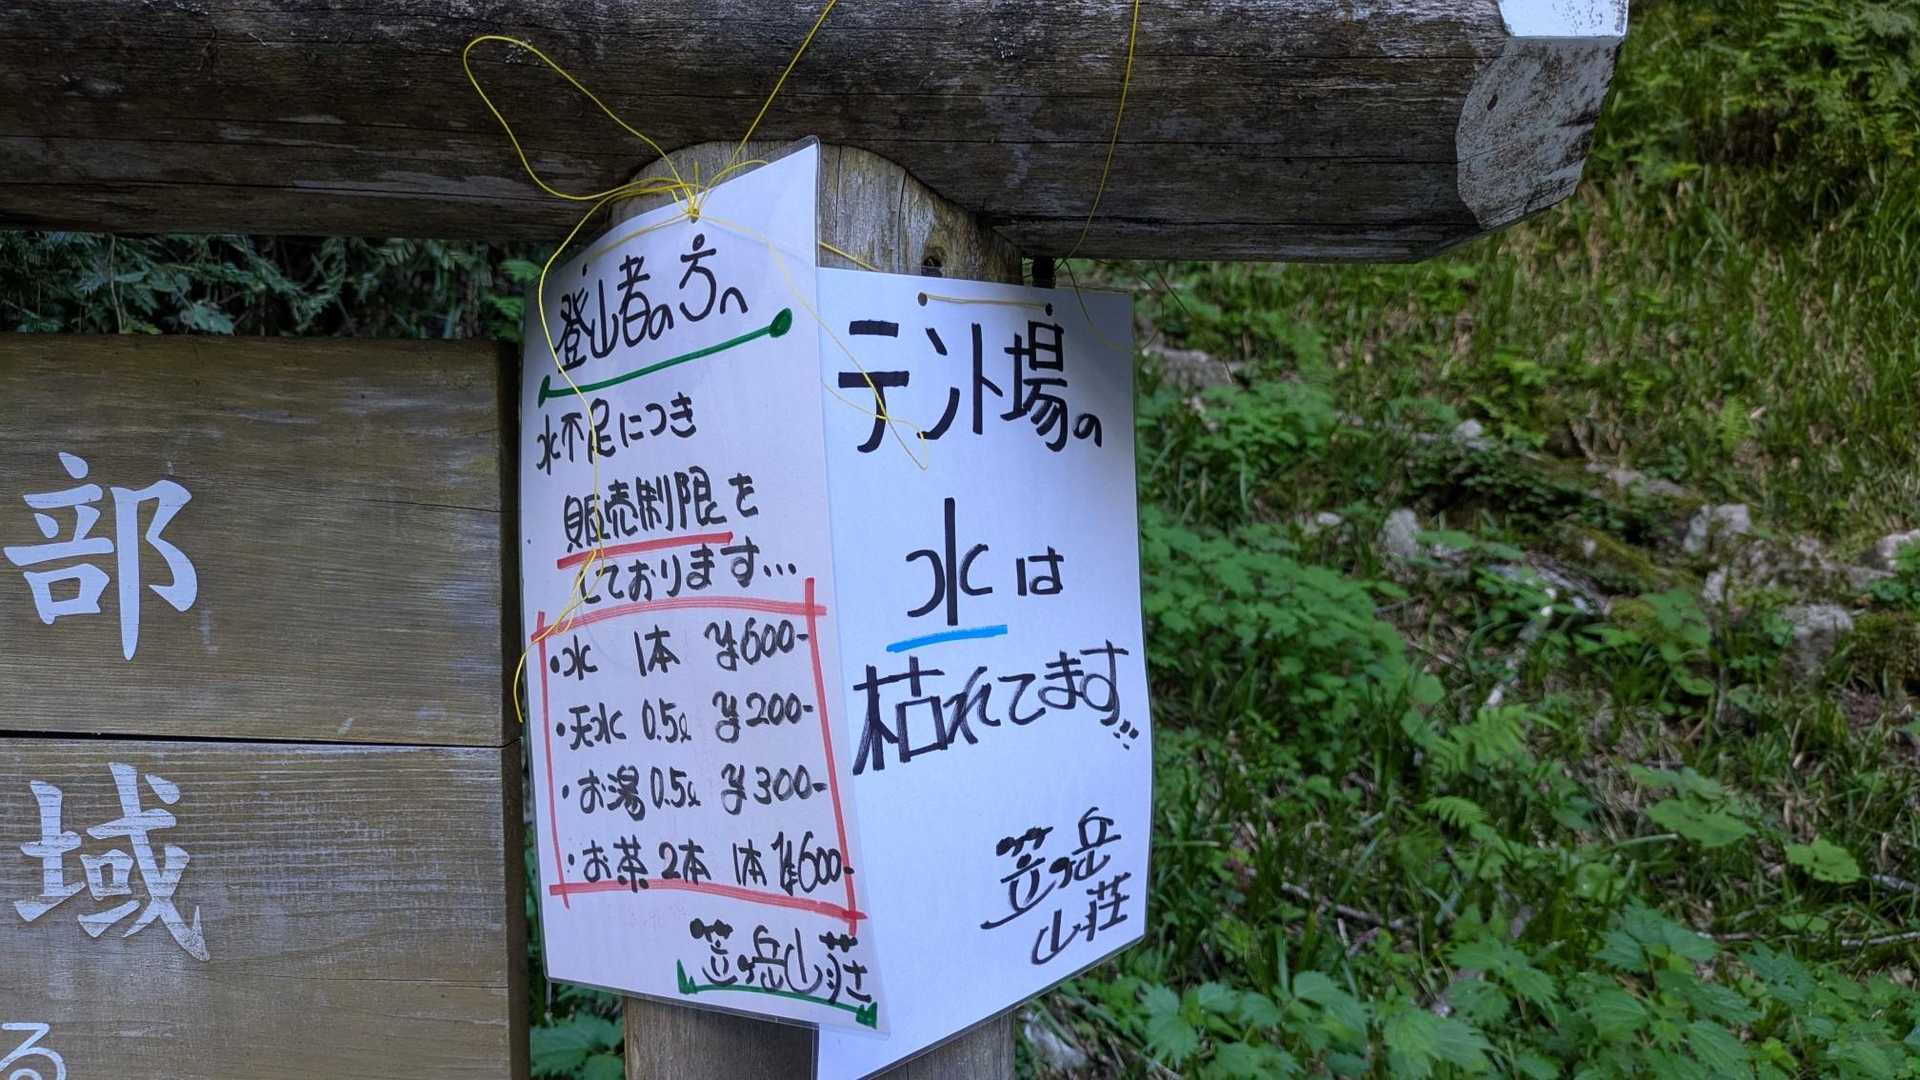 登山者の方へ
水不足につき
販売制限を
しております…
・水 1本 ¥600-
・天水 0.5ℓ ¥200-
・お湯 0.5ℓ ¥300-
・お茶 2本 1本 ¥600-
笠ヶ岳山荘
テント場の
水は
枯れてます…
笠ヶ岳
山荘
部
域
る